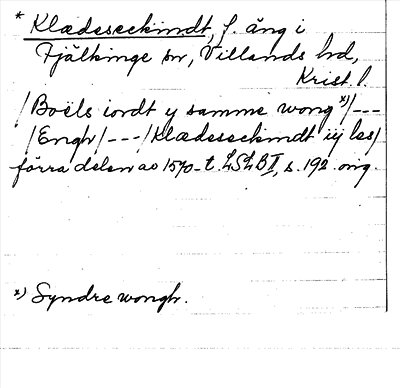 * Klædeseckindt, f. äng i
Fjälkinge sn, Villands hd,
Krist. l.
/Boëls iordt y samme wong x)/---
/Engh/---/Klædeseckindt iij les/
förra delen ao 1570-t. LSLB II, s. 192. orig.
x) Syndre wongh.